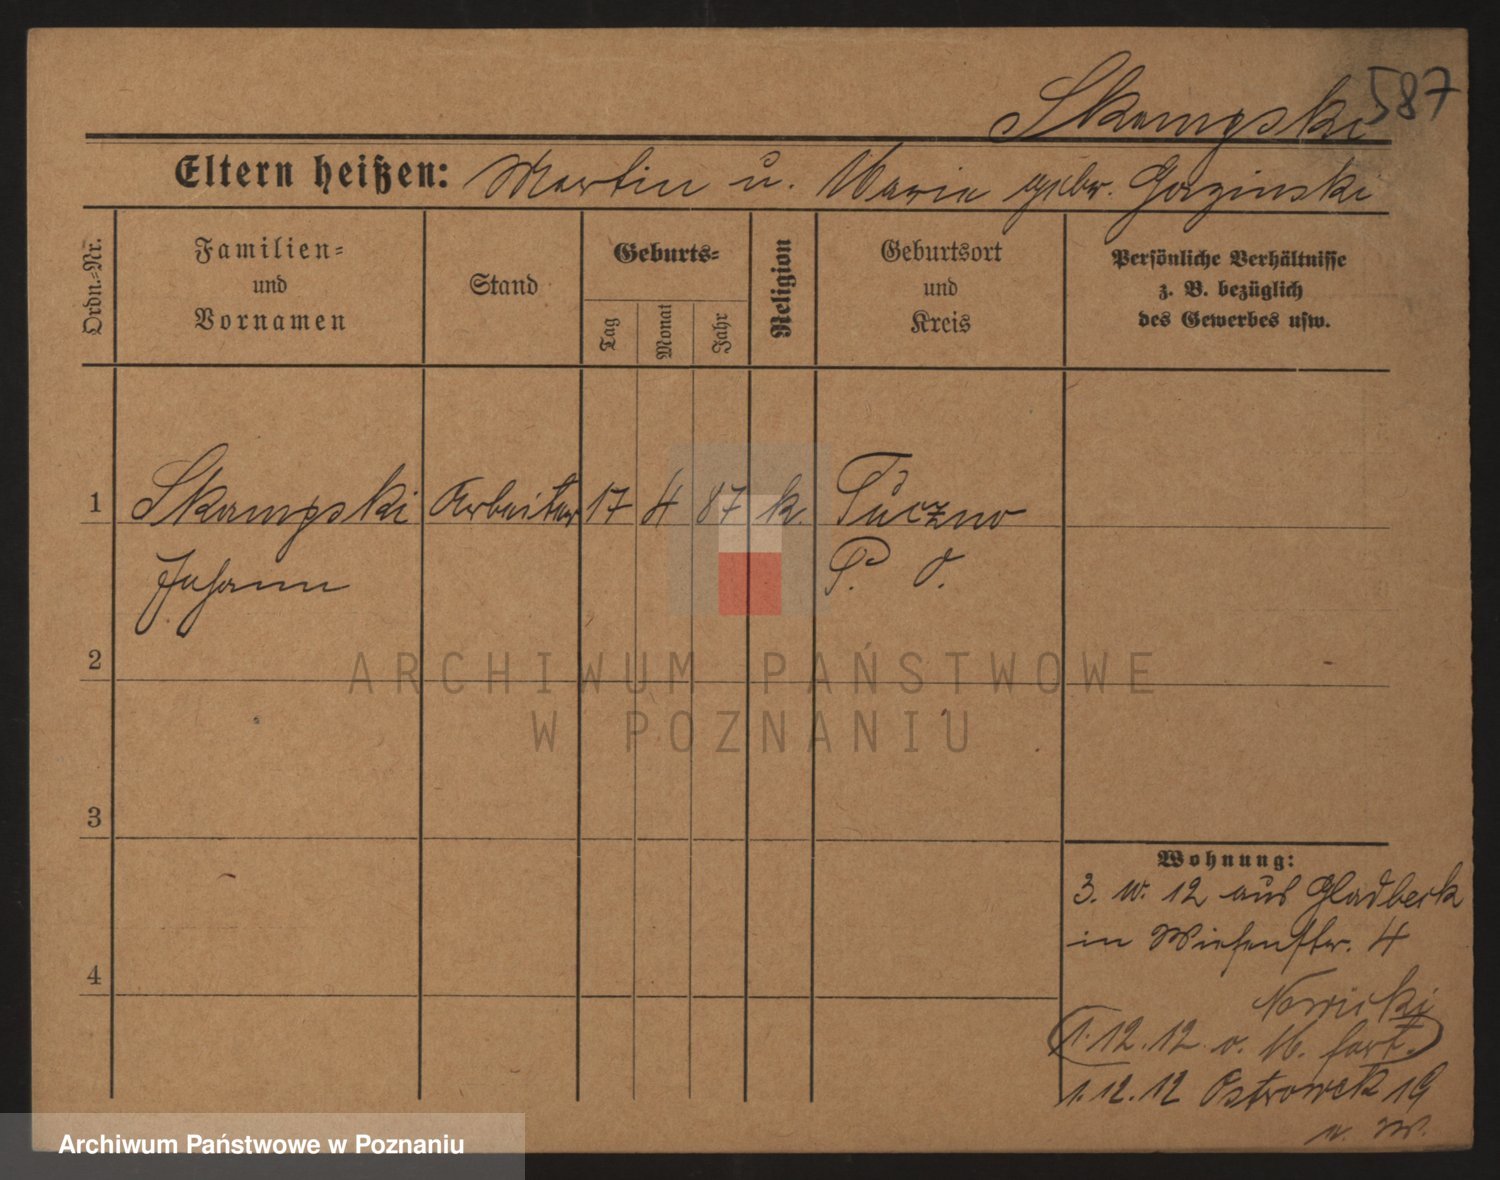 Skampski 587
Eltern heißen: Martin u. Maria gebr. Gorzinski
Ordn.=Nr.
Familien=
und
Vornamen
Stand
Geburts=
Tag
Monat
Jahr
Religion
Geburtsort
und
Kreis
Persönliche Verhältnisse
z. B. bezüglich
des Gewerbes usw.
1 Skampski Arbeiter 17 4 87 k. Tuczno
Johann P. O.
2
3
4
Wohnung:
3. 10. 12 aus Gladbeck
in Wiesenstr. 4
Nowicki
1.12.12 o. M. fort.
1.12.12 Ostrowek 19
ARCHIWUM PAŃSTWOWE
W POZNANIU
Archiwum Państwowe w Poznaniu